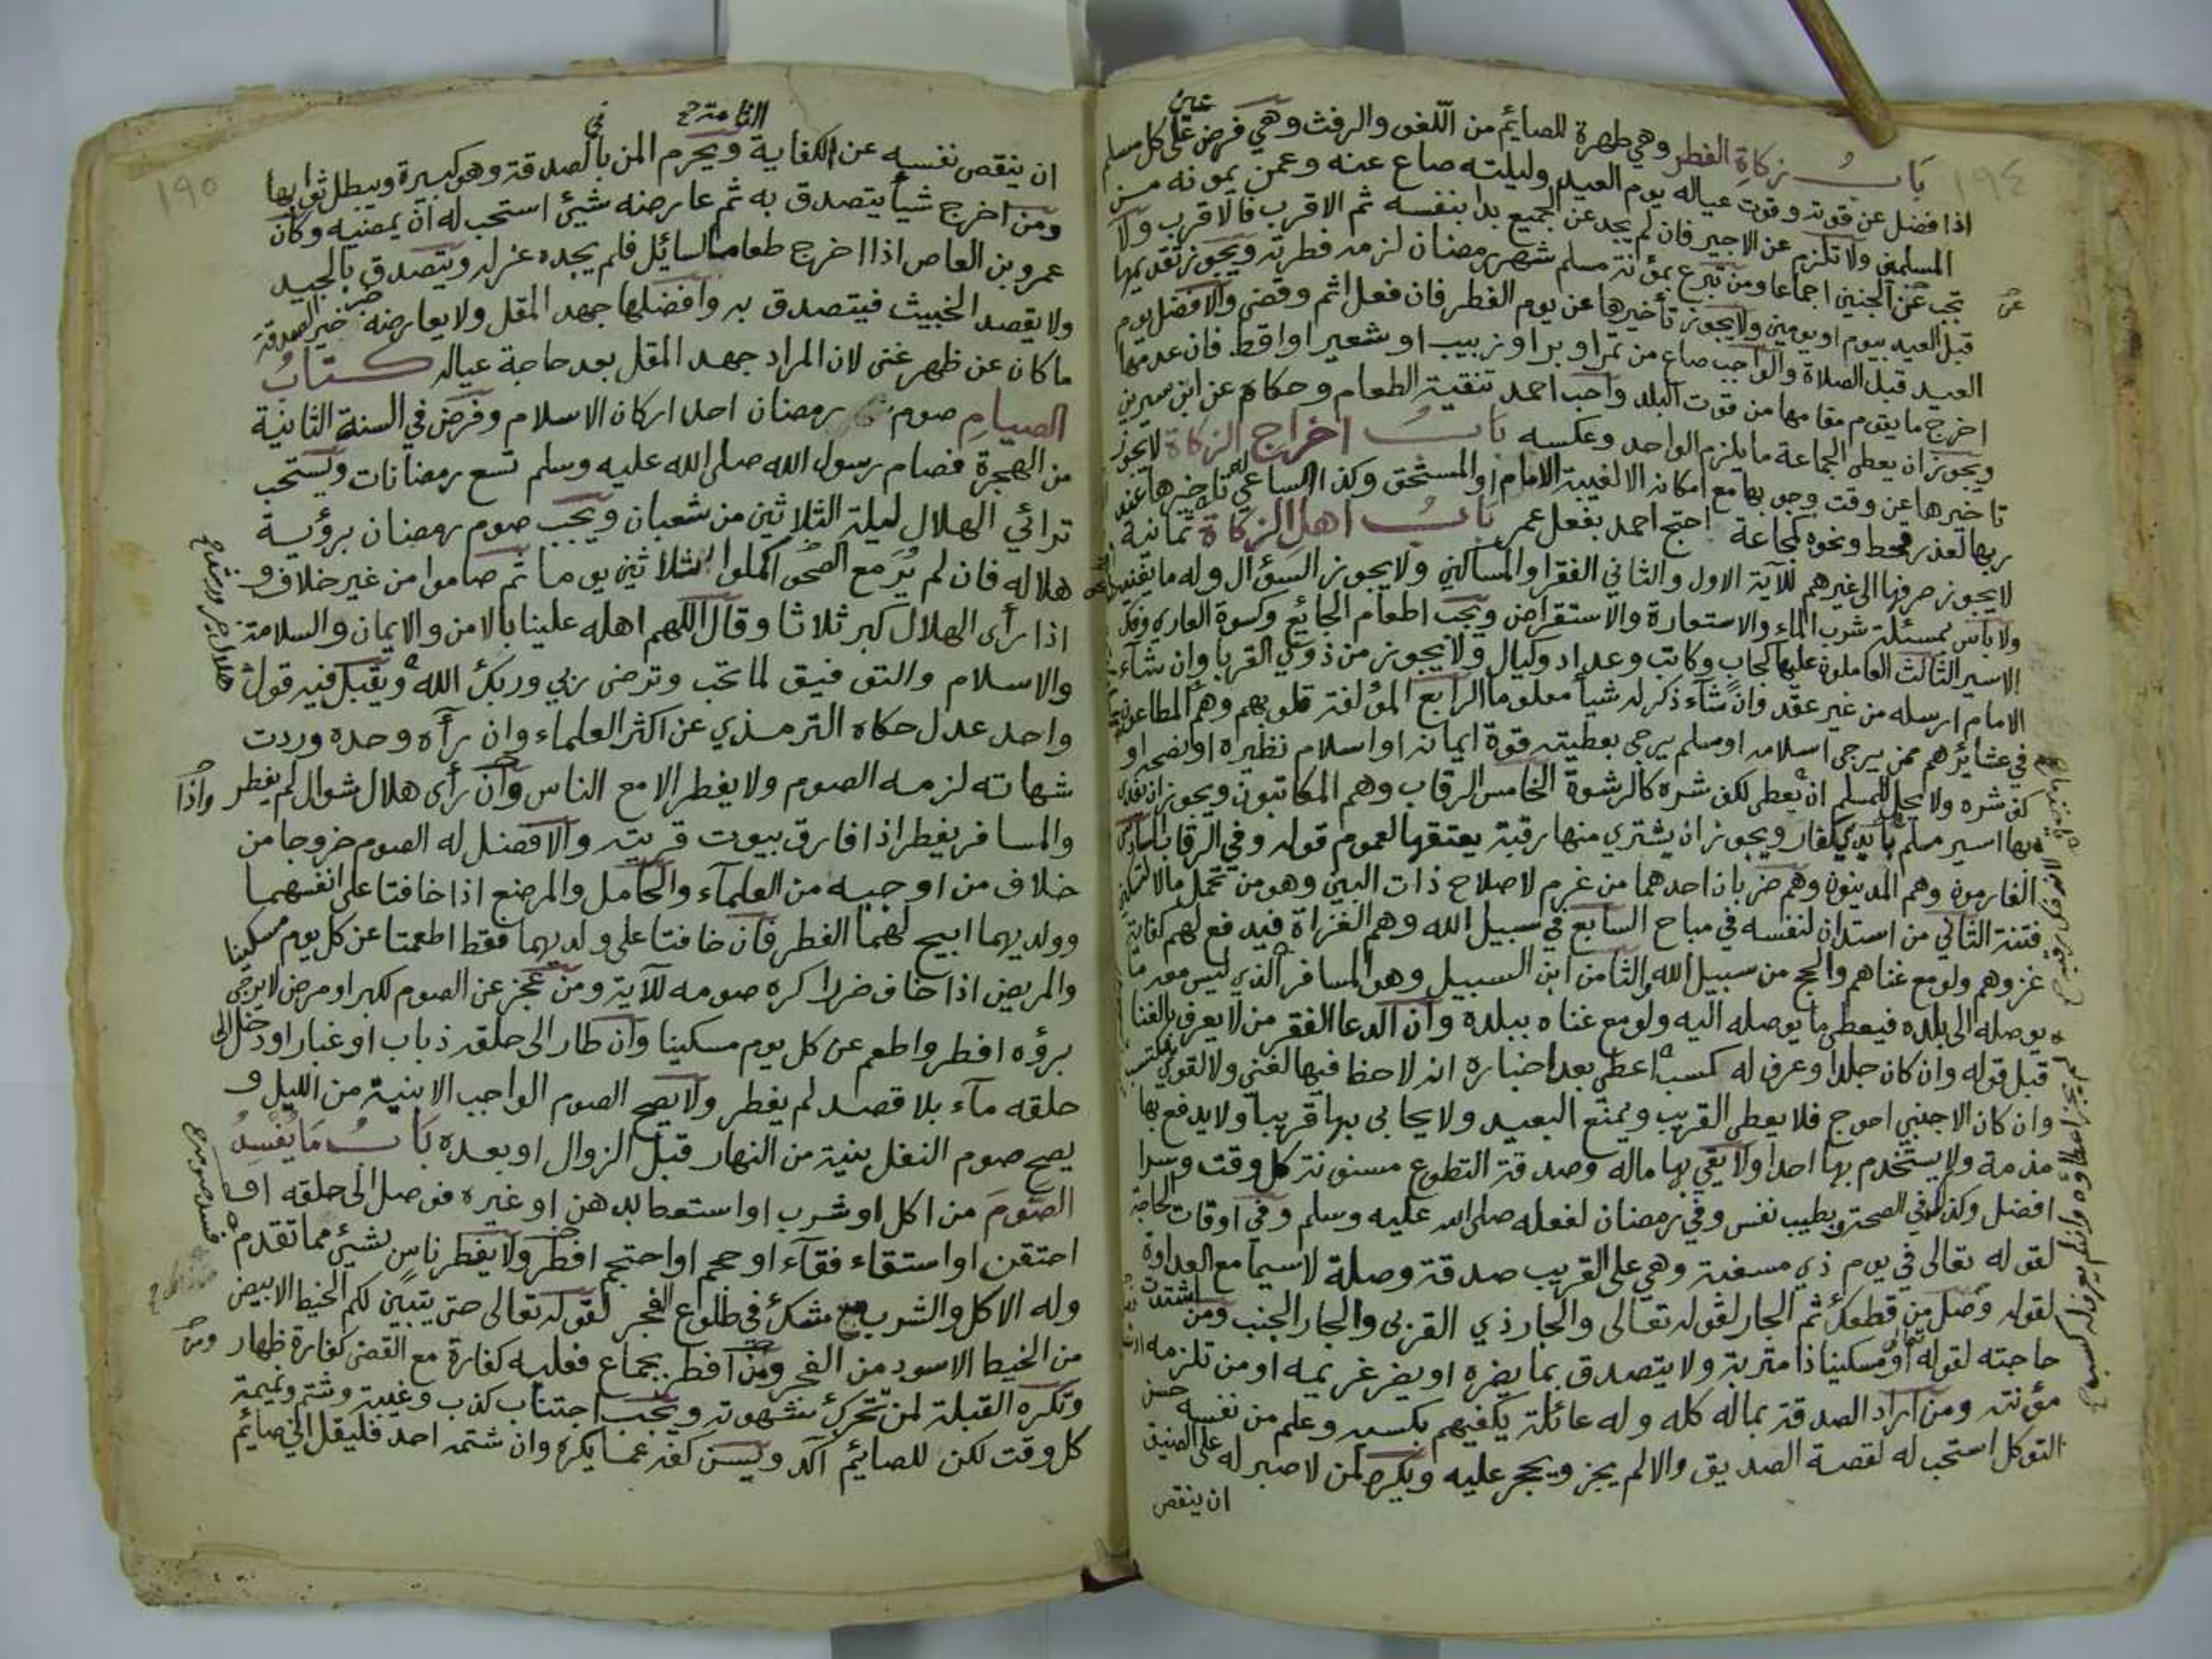 ١٩٤
باب زكاة الفطر وهي طهرة للصايم من اللغو والرفث وهي فرض عين على كل مسلم
اذا فضل عن قوته وقوت عياله يوم العيد وليلته صاع عنه وعمن يمونه من
المسلمين ولا تلزم عن الاجير فان لم يجد عن الجميع بدا بنفسه ثم الاقرب فالاقرب ولا
تجب عن الجنين اجماعا ومن تبرع بمؤنة مسلم شهر رمضان لزمه فطرته ويجوز تقديمها
قبل العيد بيوم او يومين ولا يجوز تأخيرها عن يوم الفطر فان فعل اثم وقضى والافضل يوم
العيد قبل الصلاة والواجب صاع من تمر او بر او زبيب او شعير او اقط فان عدمها
اخرج ما يقوم مقامها من قوت البلد واحب احمد تنقية الطعام وحكاه عن ابن سيرين
ويجوز ان يعطى الجماعة ما يلزم الواحد وعكسه باب اخراج الزكاة لا يجوز
تاخيرها عن وقت وجوبها مع امكانه الا لغيبة الامام او المستحق وكذا الساعي له تاخيرها عند
ربها لعذر قحط ونحوه كمجاعة احتج احمد بفعل عمر باب اهل الزكاة ثمانية
لا يجوز صرفها الى غيرهم للآية الاول والثاني الفقرا والمساكين ولا يجوز السؤال وله ما يغنيه
ولا باس بمسئلة شرب الماء والاستعارة والاستقراض ويجب اطعام الجائع وكسوة العاري وفك
الاسير الثالث العاملون عليها كجاب وكاتب وعداد وكيال ولا يجوز من ذوي القربا وان شاء
الامام ارسله من غير عقد وان شاء ذكر له شيأ معلوما الرابع المؤلفة قلوبهم وهم المطاعون
في عشائرهم ممن يرجى اسلامه او مسلم يرجى بعطيته قوة ايمانه او اسلام نظيره او نصحه او
كف شره ولا يحل للمسلم ان يعطى لكف شره كالرشوة الخامس الرقاب وهم المكاتبون ويجوز ان يفدى
بها اسير مسلم بأيدي كفار ويجوز ان يشتري منها رقبة يعتقها لعموم قوله وفي الرقاب السادس
الغارمون وهم المدينون وهم ضربان احدهما من غرم لاصلاح ذات البين وهو من تحمل مالا لتسكين
فتنة الثاني من استدان لنفسه في مباح السابع في سبيل الله وهم الغزاة فيدفع لهم كفاية
غزوهم ولو مع غناهم والحج من سبيل الله والثامن ابن السبيل وهو المسافر الذي ليس معه ما
يوصله الى بلده فيعطى ما يوصله اليه ولو مع غناه ببلده وان ادعا الفقر من لا يعرف بالغنا
قبل قوله وان كان جلدا وعرف له كسب اعطي بعد اخباره انه لا حظ فيها لغني ولا لقوي مكتسب
وان كان الاجنبي احوج فلا يعطى القريب ويمنع البعيد ولا يحابي بها قريبا ولا يدفع بها
مذمة ولا يستخدم بها احدا ولا يقي بها ماله وصدقة التطوع مسنونة كل وقت وسرا
افضل وكذلك في الصحة وبطيب نفس وفي رمضان لفعله صلى الله عليه وسلم وفي اوقات الحاجة
لقوله تعالى في يوم ذي مسغبة وهي على القريب صدقة وصلة لاسيما مع العداوة
لقوله وصل من قطعك ثم الجار لقوله تعالى والجار ذي القربى والجار الجنب ومن اشتدت
حاجته لقوله تعالى او مسكينا ذا متربة ولا يتصدق بما يضره او يضر غريمه او من تلزمه
مؤنته ومن اراد الصدقة بماله كله وله عائلة يكفيهم بكسبه وعلم من نفسه حسن
التوكل استحب له لقصة الصديق والا لم يجز ويحجر عليه ويكره لمن لا صبر له على الضيق
ان ينقص
١٩٥
ان ينقص نفسه عن الكفاية التامة ويحرم المن بالصدقة وهو كبيرة ويبطل ثوابها
ومن اخرج شيأ يتصدق به ثم عارضه شيئ استحب له ان يمضيه وكان
عمرو بن العاص اذا اخرج طعاما لسايل فلم يجده عزله ويتصدق بالجيد
ولا يقصد الخبيث فيتصدق به وافضلها جهد المقل ولا يعارضه خبر خير الصدقة
ما كان عن ظهر غنى لان المراد جهد المقل بعد حاجة عياله كتاب
الصيام صوم رمضان احد اركان الاسلام وفرض في السنة الثانية
من الهجرة فصام رسول الله صلى الله عليه وسلم تسع رمضانات ويستحب
ترائي الهلال ليلة الثلاثين من شعبان ويجب صوم رمضان برؤية
هلاله فان لم ير مع الصحو اكملوا ثلاثين يوما ثم صاموا من غير خلاف و
اذا رأى الهلال كبر ثلاثا وقال اللهم اهله علينا بالامن والايمان والسلامة
والاسلام والتوفيق لما تحب وترضى ربي وربك الله ويقبل فيه قول
واحد عدل حكاه الترمذي عن اكثر العلماء وان رآه وحده وردت
شهاته لزمه الصوم ولا يفطر الا مع الناس وان رأى هلال شوال لم يفطر
واذا
والمسافر يفطر اذا فارق بيوت قريته والافضل له الصوم خروجا من
خلاف من اوجبه من العلماء والحامل والمرضع اذا خافتا على انفسهما
وولديهما ابيح لهما الفطر فان خافتا على ولديهما فقط اطعمتا عن كل يوم مسكينا
والمريض اذا خاف ضررا كره صومه للآية ومن عجز عن الصوم لكبر او مرض لا يرجى
برؤه افطر واطعم عن كل يوم مسكينا وان طار الى حلقه ذباب او غبار او دخل الى
حلقه مآء بلا قصد لم يفطر ولا يصح الصوم الواجب الا بنية من الليل و
يصح صوم النفل بنية من النهار قبل الزوال او بعده باب ما يفسد
الصوم من اكل او شرب او استعط بدهن او غيره فوصل الى حلقه او
احتقن او استقاء فقآء او حجم او احتجم افطر ولا يفطر ناس بشيئ مما تقدم
وله الاكل والشرب مع شك في طلوع الفجر لقوله تعالى حتى يتبين لكم الخيط الابيض
من الخيط الاسود من الفجر ومن افطر بجماع فعليه كفارة مع القضى كفارة ظهار
وتكره القبلة لمن تتحرك شهوته ويجب اجتناب كذب وغيبة وشتم ونميمة
كل وقت لكن للصائم آكد ويسن كفه عما يكره وان شتمه احد فليقل اني صائم